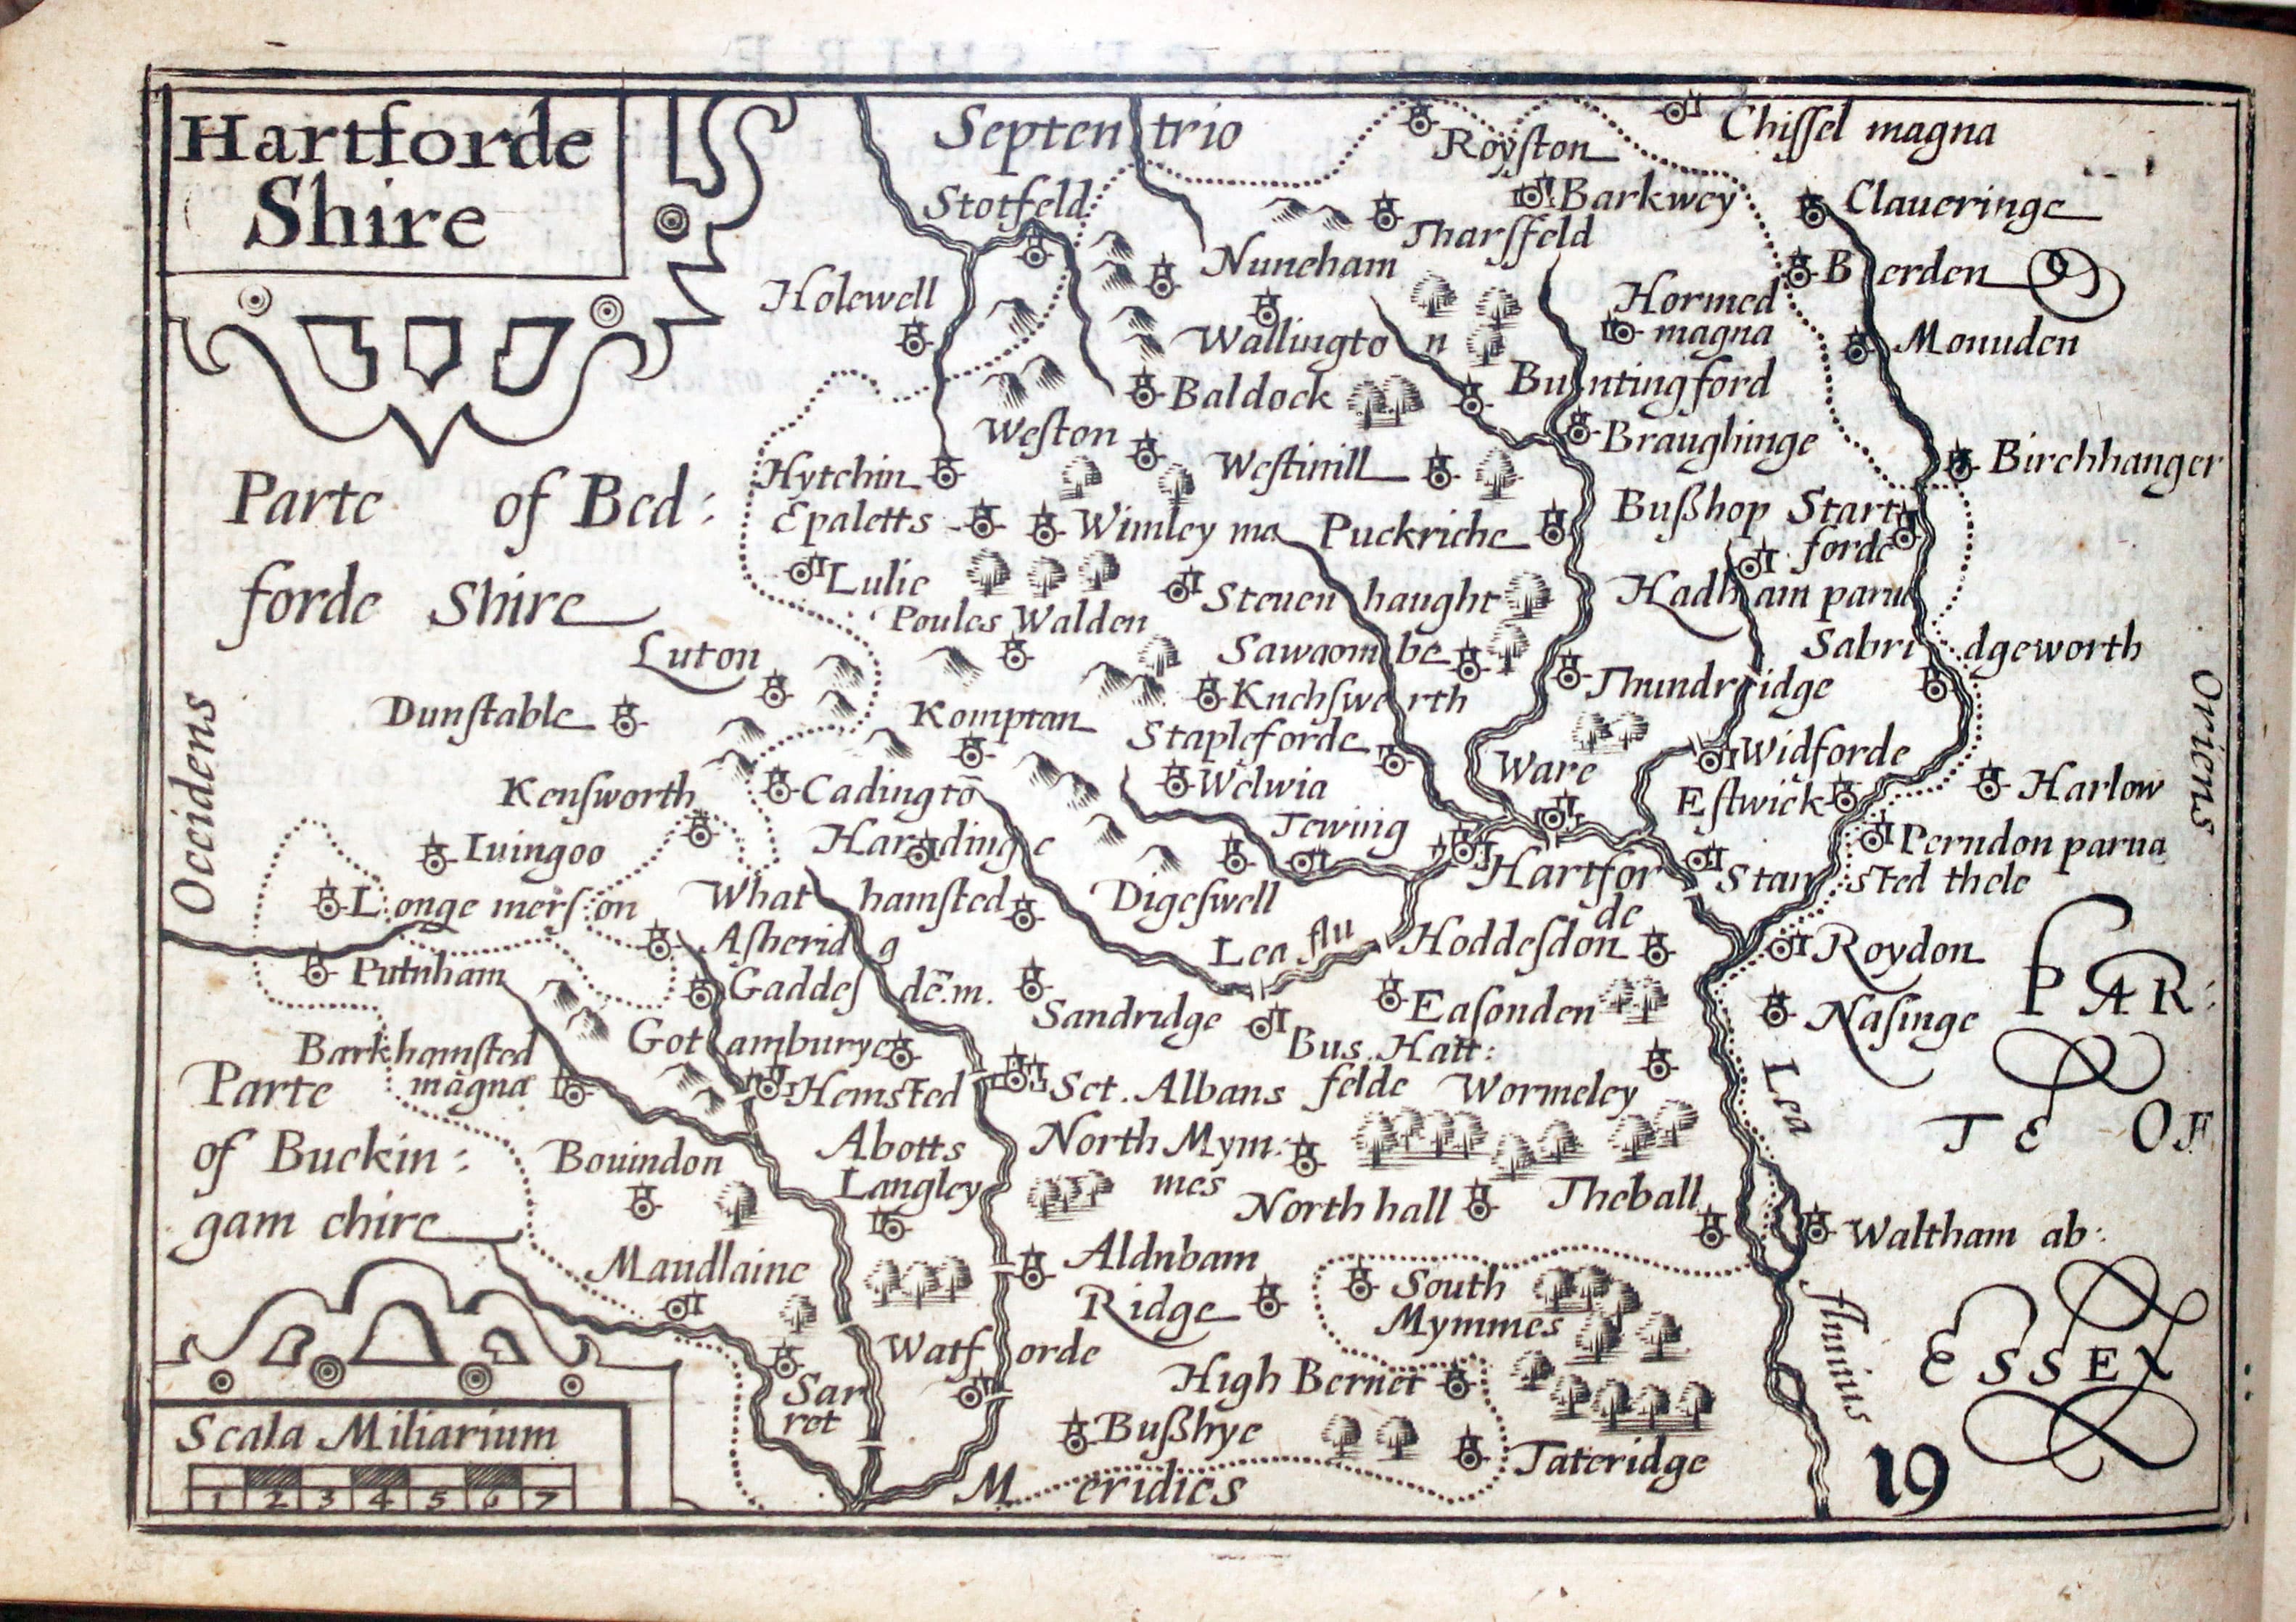 Hartforde
Shire
Septentrio
Royſton
Chiſſel magna
Stotfeld
Barkwey
Claueringe
Tharſfeld
Nuneham
Berden
Holewell
Hormed
magna
Wallington
Monuden
Baldock
Buntingford
Weſton
Braughinge
Hytchin
Weſtinill
Birchhanger
Parte of Bed:
forde Shire
Epaletts
Wimley ma
Puckriche
Bußhop Start
forde
Lulie
Steuenhaught
Hadham parua
Poules Walden
Luton
Sawaombe
Sabridgeworth
Dunſtable
Knehſwerth
Thundridge
Oriens
Occidens
Komptan
Stapleforde
Ware
Widforde
Kenſworth
Cadingtō
Welwia
Eſtwick
Harlow
Iuingoo
Hardinge
Tewing
Perndon parua
Hartfor
de
Stansted thele
Longe merſion
Whathamsted
Digeſwell
Aſheridg
Lea flu
Hoddeſdon
Roydon
Putnham
Gaddeſdē.m.
Sandridge
Eaſonden
Naſinge
PAR:
TE OF
ESSEX
Barkhamſted
magna
Gotlamburye
Bus. Hatt:
felde
Hemsted
Sct. Albans
Wormeley
Lea
fluuius
Parte
of Buckin:
gam chire
Bouindon
Abotts
Langley
North Mym:
mes
North hall
Theball
Waltham ab:
Maudlaine
Aldnbam
Ridge
South
Mymmes
Watforde
Sar
ret
High Bernet
Bußhye
Tateridge
Scala Miliarium
1 2 3 4 5 6 7
Meridies
19